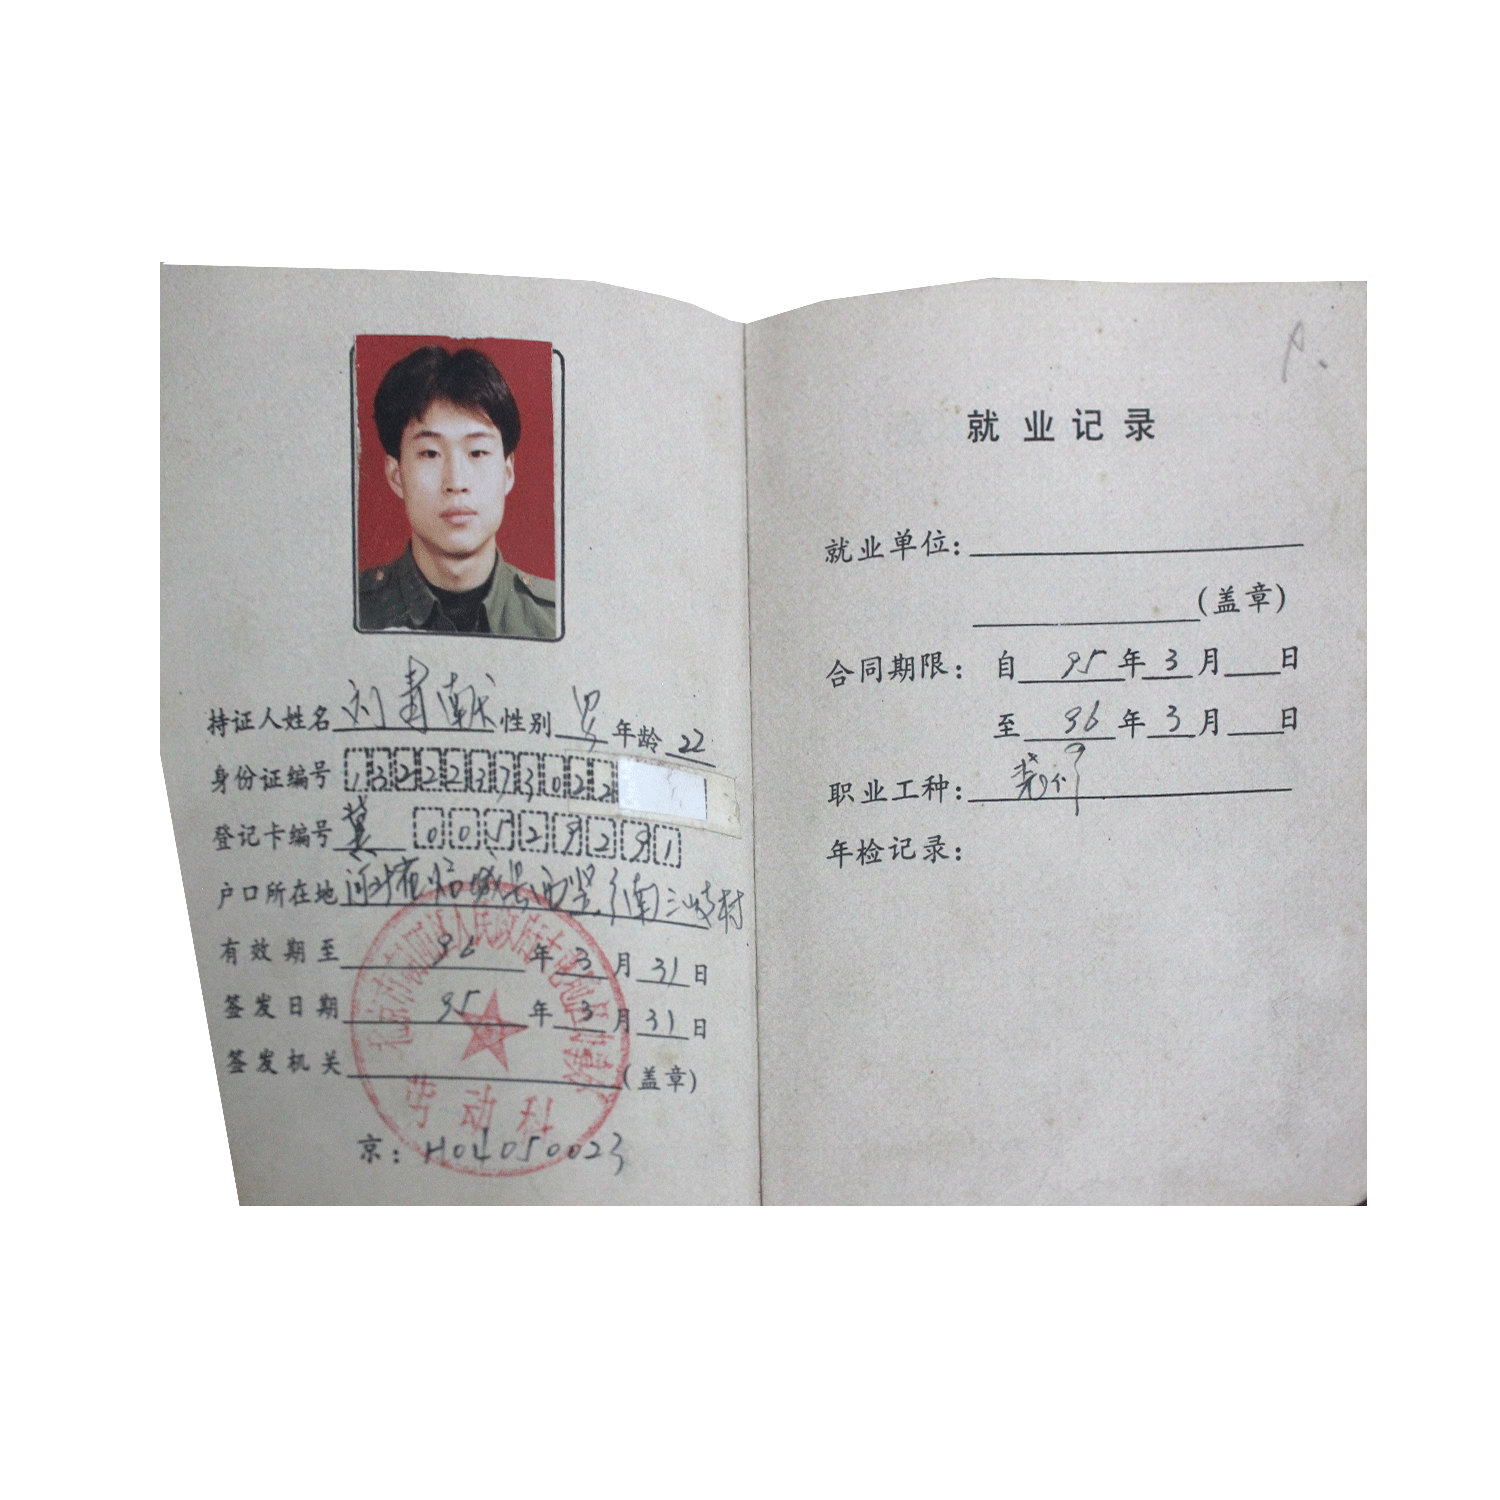 持证人姓名 刘书献 性别 男 年龄 22
身份证编号 13222373022
登记卡编号 冀 00529291
户口所在地 河北省临城县西竖乡南三岐村
有效期至 96 年 3 月 31 日
签发日期 95 年 3 月 31 日
签发机关 (盖章)
京: H04050023
就业记录
就业单位:
(盖章)
合同期限: 自 95 年 3 月 日
至 96 年 3 月 日
职业工种:
年检记录: